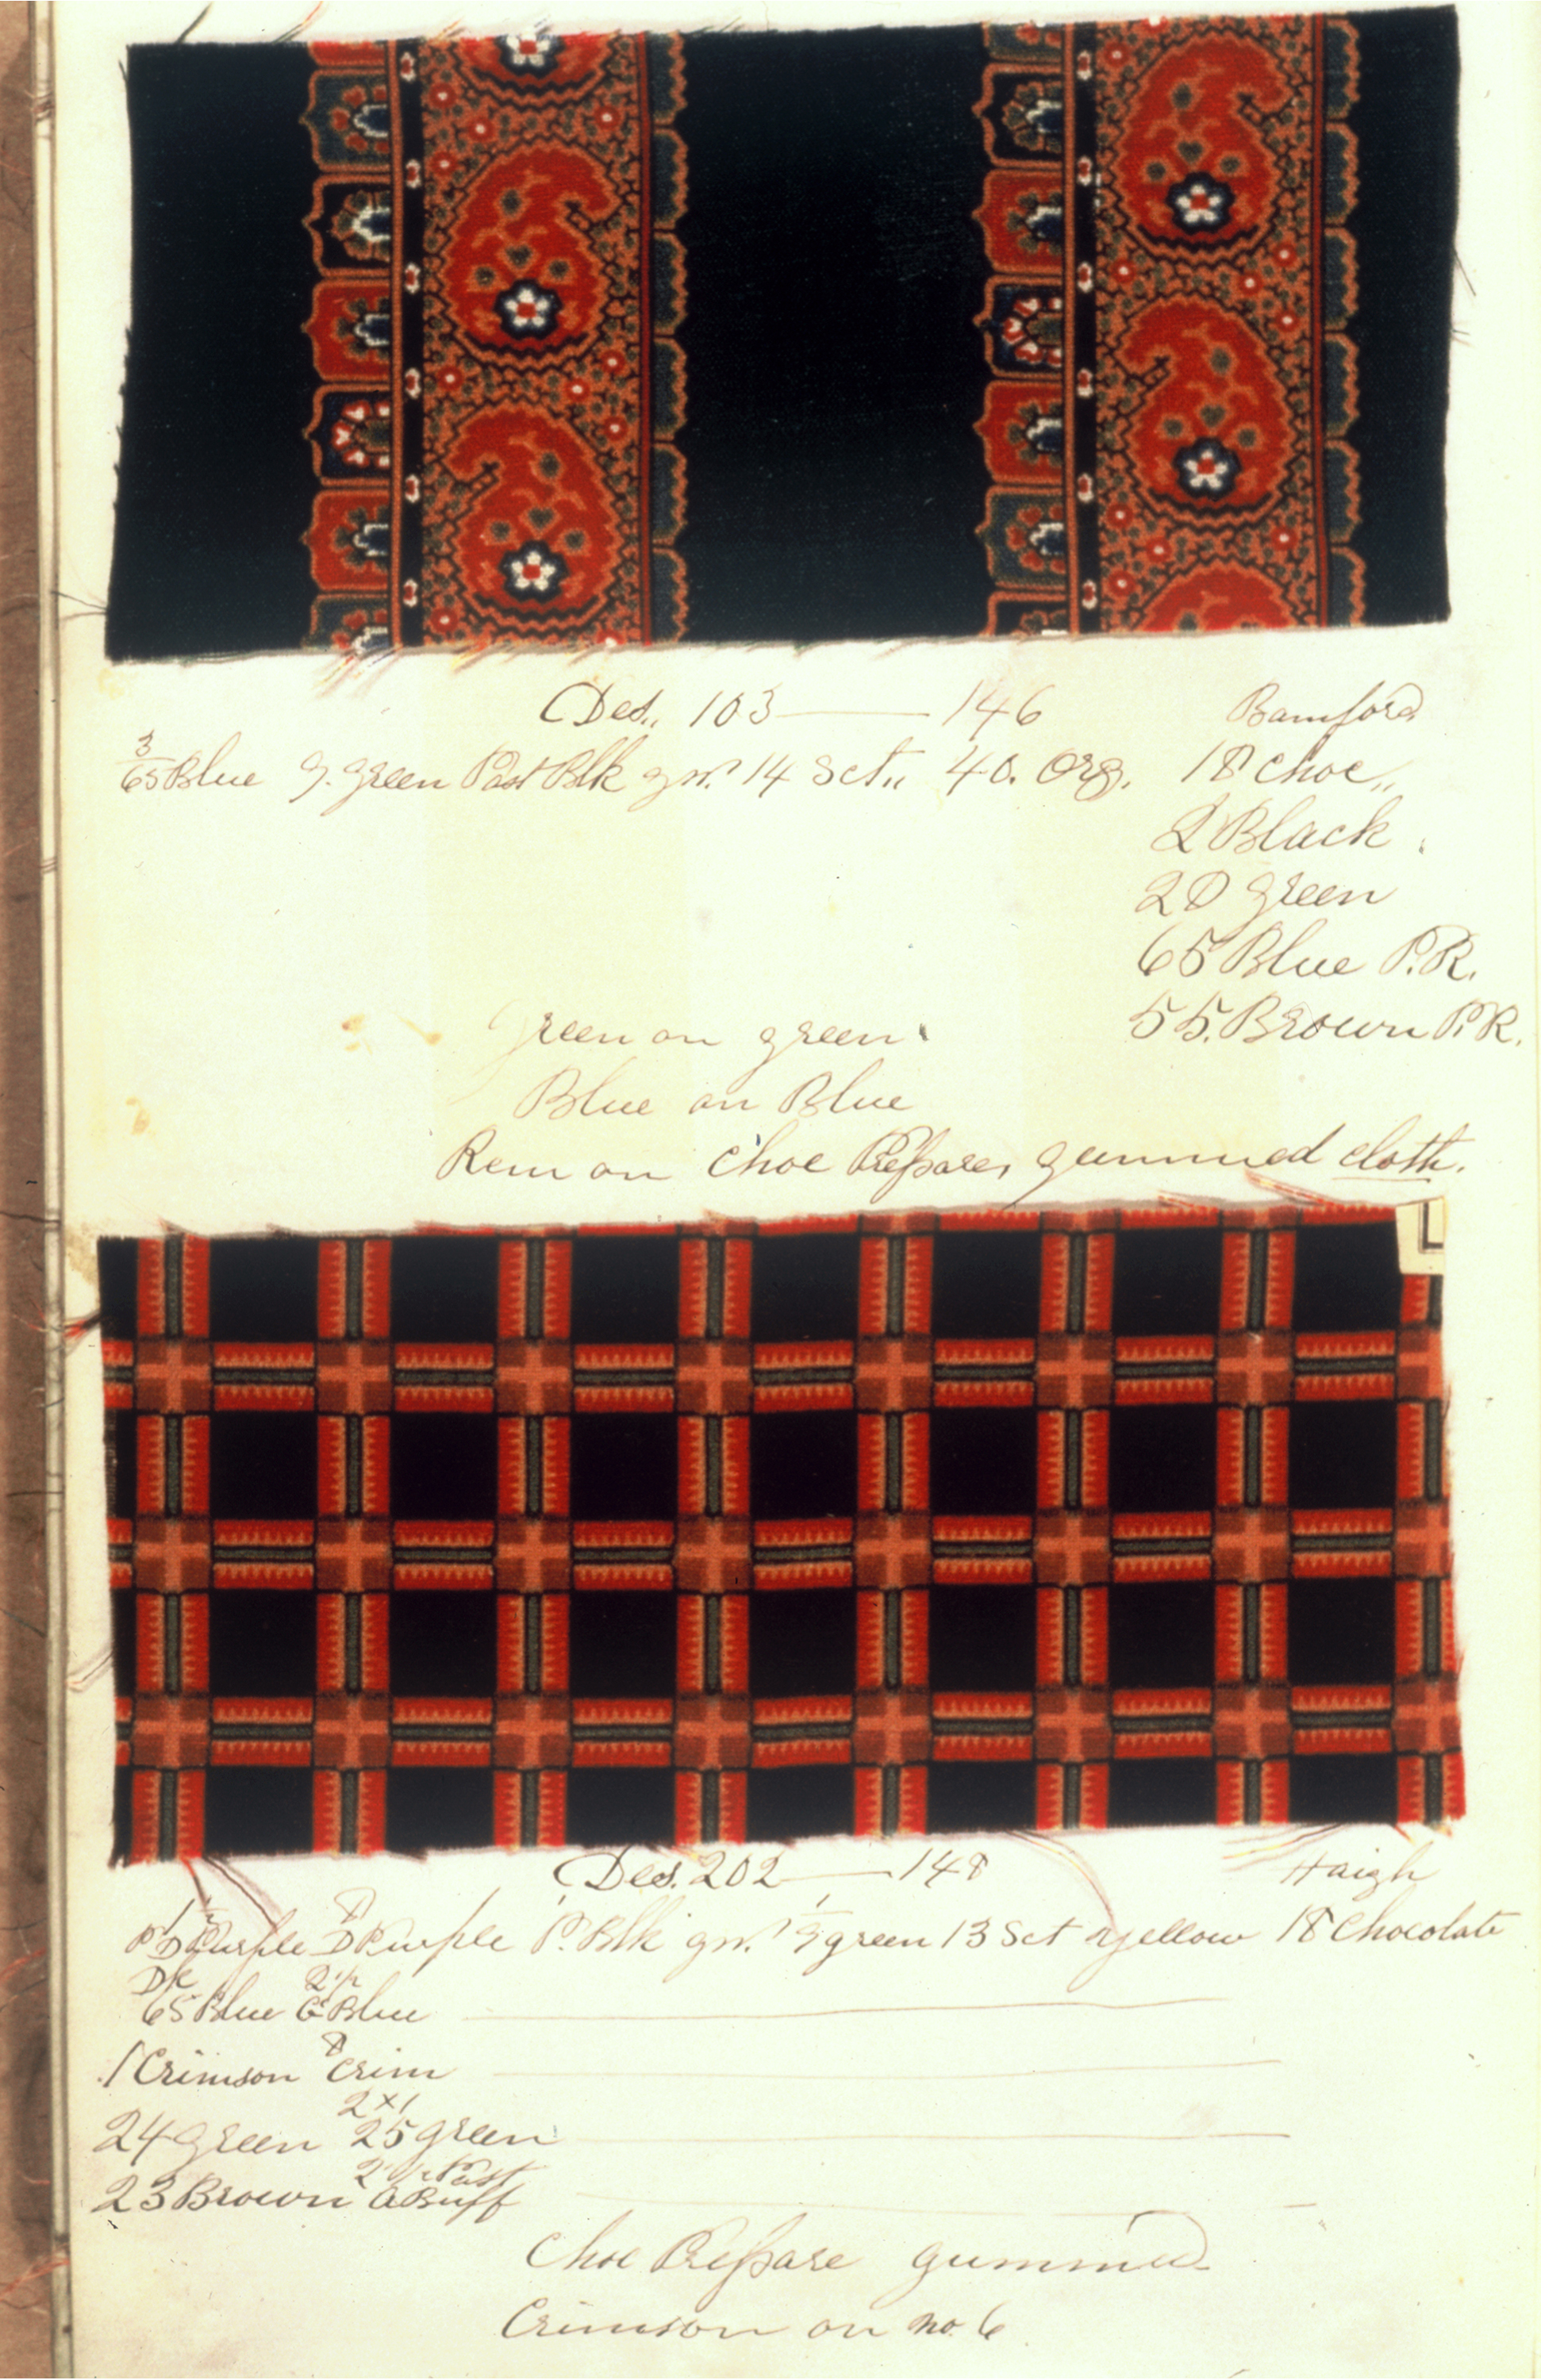 Des,, 103 — 146 Bamford
3
65 Blue G. Green Past Blk gn? 14 Sct,, 40. Org. 18 Choc,,
2 Black.
20 Green
65 Blue P.R.
55. Brown P.R.
Green on green
Blue on Blue
Rem on Choc Prepare, gummed cloth.
L
Des. 202 — 148 Haigh
Purple D Purple P. Blk gn? green 13 Sct yellow 18 Chocolate
65 Blue Blue
1 Crimson 8 Crim
2x1
24 Green 25 green
23 Brown Buff
Choc Prepare gummed
Crimson on no. 6